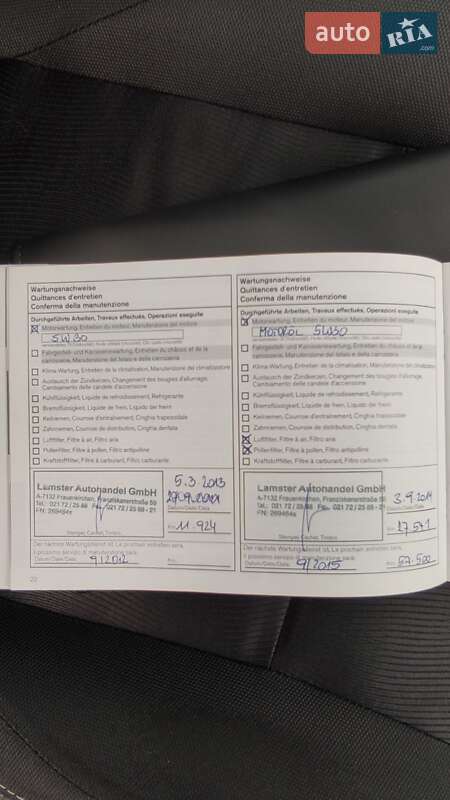 auto RIA .com
Wartungsnachweise
Quittances d'entretien
Conferma della manutenzione
Durchgeführte Arbeiten, Travaux effectués, Operazioni eseguite
Motorwartung, Entretien du moteur, Manutenzione del motore
5W30
Fahrgestell- und Karosseriewartung, Entretien du châssis et de la
carrosserie, Manutenzione del telaio e della carrozzeria
Klima-Wartung, Entretien de la climatisation, Manutenzione del climatizzatore
Austausch der Zündkerzen, Changement des bougies d'allumage,
Cambiamento delle candele d'accensione
Kühlflüssigkeit, Liquide de refroidissement, Refrigerante
Bremsflüssigkeit, Liquide de frein, Liquido dei freni
Keilriemen, Courroie d'entraînement, Cinghia trapezoidale
Zahnriemen, Courroie de distribution, Cinghia dentata
Luftfilter, Filtre à air, Filtro aria
Pollenfilter, Filtre à pollen, Filtro antipolline
Kraftstofffilter, Filtre à carburant, Filtro carburante
Lamster Autohandel GmbH
A-7132 Frauenkirchen, Franziskanerstraße 59
Tel.: 021 72 / 25 88 Fax: 021 72 / 25 88 - 21
FN: 269464s
5.3 2013
Datum/Date/Data:
Km: 11.924
Stempel, Cachet, Timbro
Der nächste Wartungsdienst ist, Le prochain entretien sera,
Il prossimo servizio di manutenzione sarà:
Datum/Date/Data: 9/2012 Km:
22
Wartungsnachweise
Quittances d'entretien
Conferma della manutenzione
Durchgeführte Arbeiten, Travaux effectués, Operazioni eseguite
Motorwartung, Entretien du moteur, Manutenzione del motore
MOTORÖL 5W30
Fahrgestell- und Karosseriewartung, Entretien du châssis et de la
carrosserie, Manutenzione del telaio e della carrozzeria
Klima-Wartung, Entretien de la climatisation, Manutenzione del climatizzatore
Austausch der Zündkerzen, Changement des bougies d'allumage,
Cambiamento delle candele d'accensione
Kühlflüssigkeit, Liquide de refroidissement, Refrigerante
Bremsflüssigkeit, Liquide de frein, Liquido dei freni
Keilriemen, Courroie d'entraînement, Cinghia trapezoidale
Zahnriemen, Courroie de distribution, Cinghia dentata
Luftfilter, Filtre à air, Filtro aria
Pollenfilter, Filtre à pollen, Filtro antipolline
Kraftstofffilter, Filtre à carburant, Filtro carburante
Lamster Autohandel GmbH
A-7132 Frauenkirchen, Franziskanerstraße 59
Tel.: 021 72 / 25 88 Fax: 021 72 / 25 88 - 21
FN: 269464s
3.9.2014
Datum/Date/Data:
Km: 27541
Stempel, Cachet, Timbro
Der nächste Wartungsdienst ist, Le prochain entretien sera,
Il prossimo servizio di manutenzione sarà:
Datum/Date/Data: 9/2015 Km: 57.500